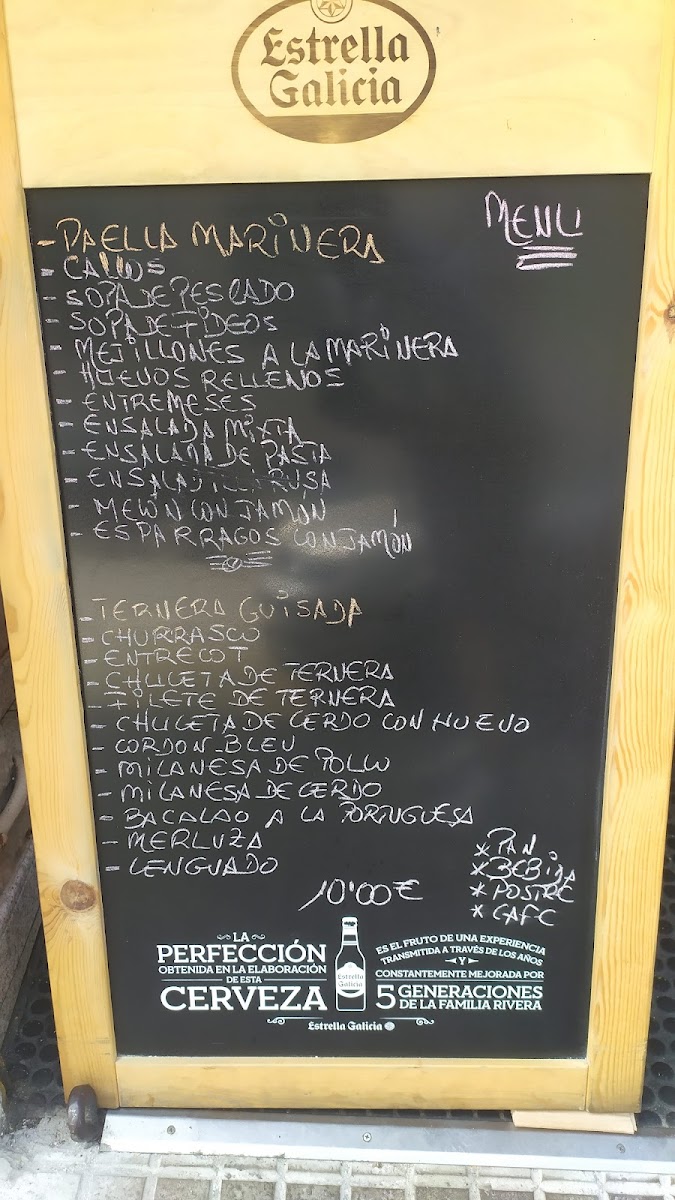 Estrella
Galicia
MENU
- PAELLA MARINERA
- CALLOS
- SOPA DE PESCADO
- SOPA DE FIDEOS
- MEJILLONES A LA MARINERA
- HUEVOS RELLENOS
- ENTREMESES
- ENSALADA MIXTA
- ENSALADA DE PASTA
- ENSALADILLA RUSA
- MELÓN CON JAMÓN
- ESPARRAGOS CON JAMÓN
- TERNERA GUISADA
- CHURRASCO
- ENTRECOT
- CHULETA DE TERNERA
- FILETE DE TERNERA
- CHULETA DE CERDO CON HUEVO
- CORDON-BLEU
- MILANESA DE POLLO
- MILANESA DE CERDO
- BACALAO A LA PORTUGUESA
- MERLUZA
- LENGUADO
* PAN
* BEBIDA
* POSTRE
* CAFE
10'00€
LA
PERFECCIÓN
OBTENIDA EN LA ELABORACIÓN
DE ESTA
CERVEZA
Estrella
Galicia
ES EL FRUTO DE UNA EXPERIENCIA
TRANSMITIDA A TRAVÉS DE LOS AÑOS
Y
CONSTANTEMENTE MEJORADA POR
5 GENERACIONES
DE LA FAMILIA RIVERA
Estrella Galicia